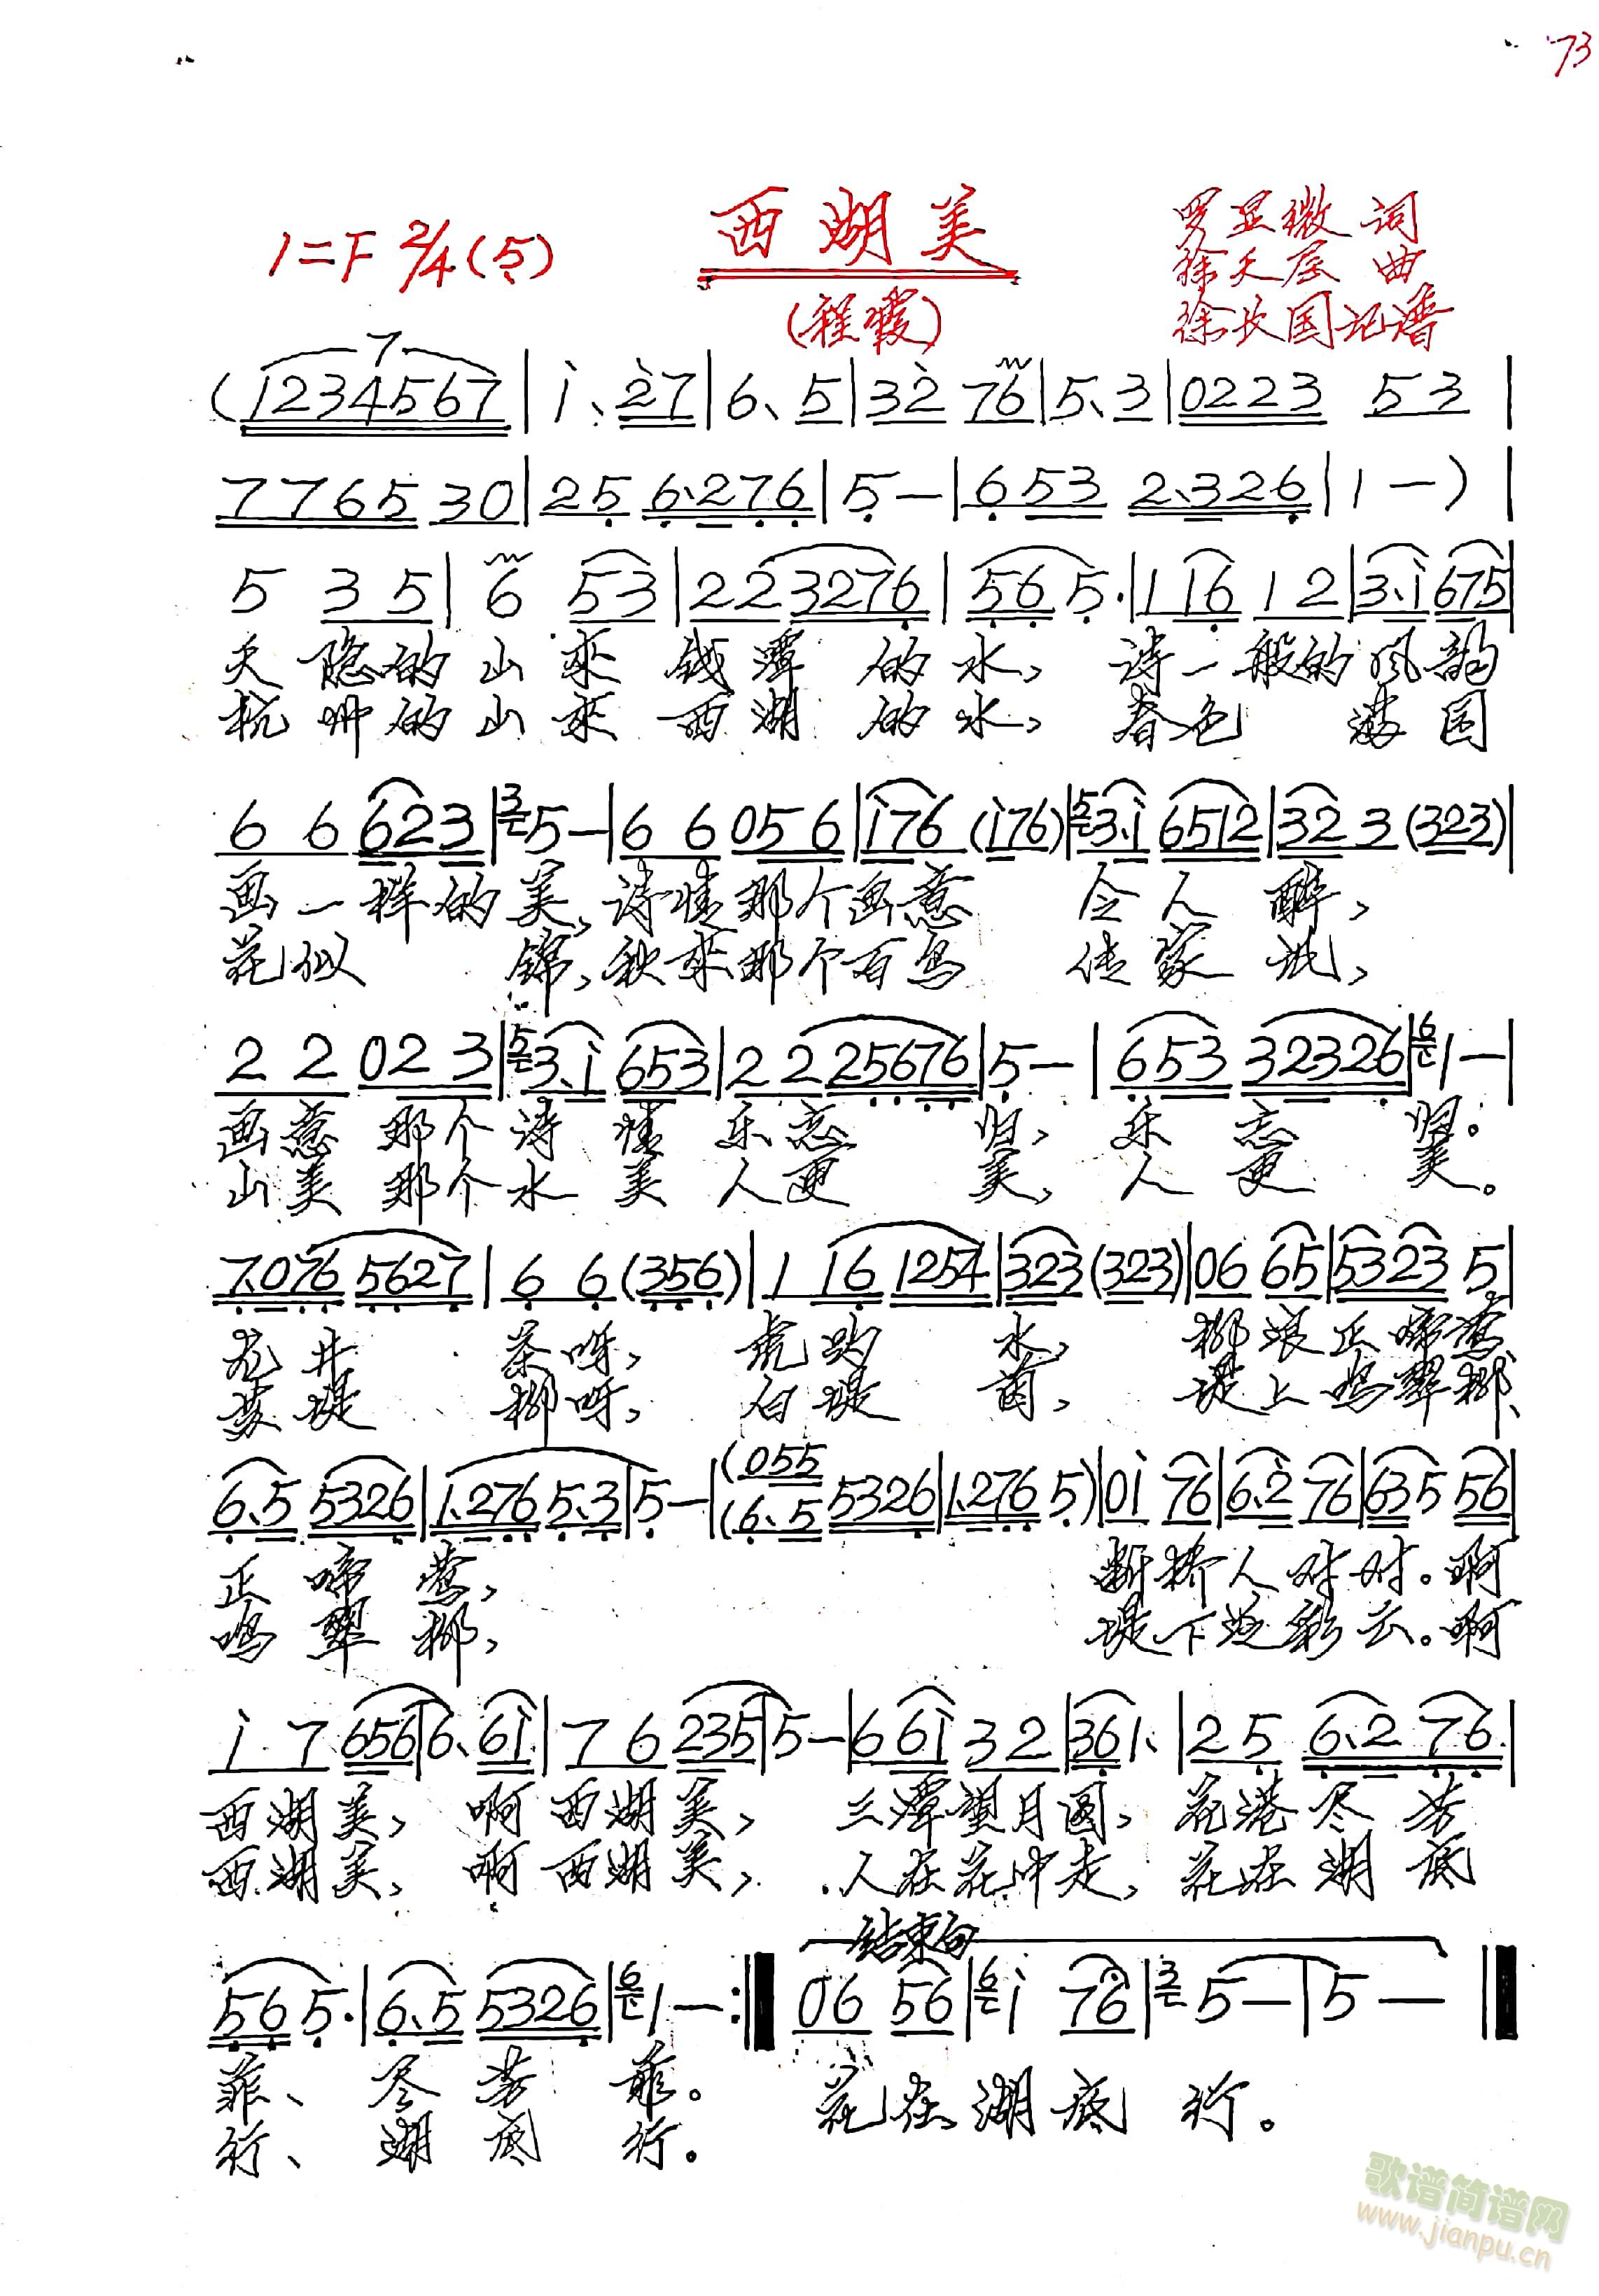 73
西湖美
1=F 2/4 (5̣)
罗显徽 词
(程霞)
曲
记谱
7
(1234567 | i、 27 | 6、5 | 32 76 | 5、3 | 0223 53 |
7765 30 | 25 6、276 | 5 — | 653 2、326 | 1 — ) |
5 35 | 6 53 | 22 3276 | 56 5· | 1 16 12 | 3、i 675 |
天隐的山来钱潭的水，诗一般的风韵
杭州的山来西湖的水，春色满园
66 623 | 3 5 — | 66 056 | i76 (i76) | 5 3、i 6512 | 32 3 (323) |
画一样的美，诗情那个画意令人醉，
花似锦，秋来那个百鸟传家
22 023 | 5 3、i 653 | 22 25676 | 5 — | 653 32326 | 6 1 — |
画意那个诗情乐忘归，乐忘归。
山美那个水美人更美，人更美。
7、076 5627 | 66 (356) | 1 16 1254 | 323 (323) | 06 65 | 5323 5 |
龙井茶呀，虎跑水，柳浪正啼莺、
苏堤柳呀，白堤茵，堤上鸣翠柳、
6、5 5326 | 1、276 5、3 | 5 — | (055
(6、5 5326 | 1、276 5) | 0i 76 | 6、2 76 | 635 56 |
正啼莺， 断桥人对对。啊
鸣翠柳， 堤下泛彩云。啊
i7 656 | 6、6i | 76 235 | 5 — | 66i 32 | 361、 | 25 6、2 76 |
西湖美，啊西湖美，三潭望月圆，花港尽芳
西湖美，啊西湖美，人在花中走，花在湖底
结束句
56 5· | 6、5 5326 | 6 1 — :‖ 06 56 | 6 i 76 | 3 5 — | 5 — ‖
菲、尽芳菲。 花在湖底行。
行、湖底行。
歌谱简谱网
www.jianpu.cn